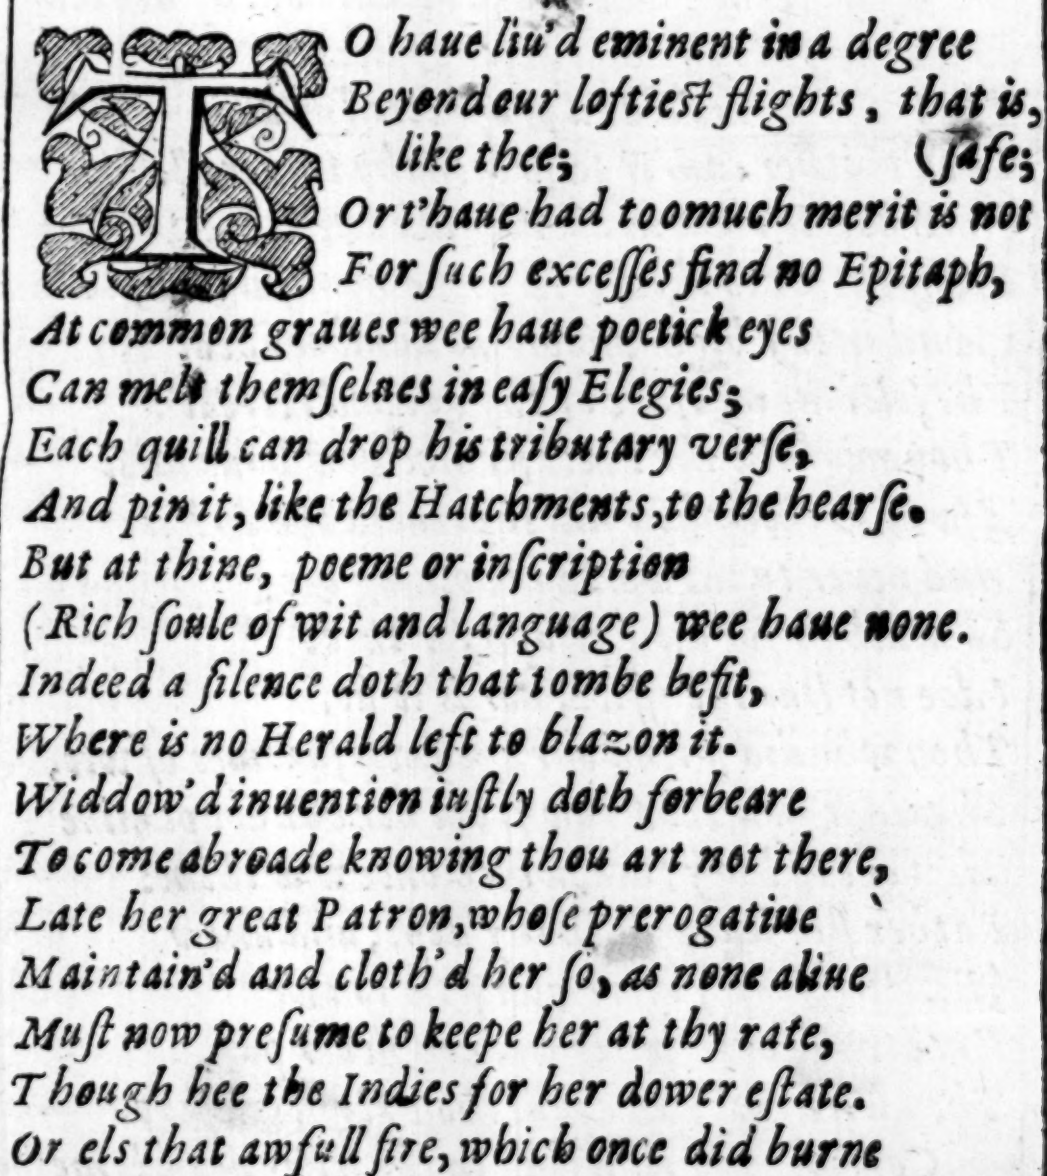 TO haue liu'd eminent in a degree
Beyond our loftieſt flights, that is,
like thee;
(ſafe;
Or t'haue had too much merit is not
For ſuch exceſſes find no Epitaph,
At common graues wee haue poetick eyes
Can melt themſelues in eaſy Elegies;
Each quill can drop his tributary verſe,
And pin it, like the Hatchments, to the hearſe.
But at thine, poeme or inſcription
(Rich ſoule of wit and language) wee haue none.
Indeed a ſilence doth that tombe befit,
Where is no Herald left to blazon it.
Widdow'd inuention iuſtly doth forbeare
To come abroade knowing thou art not there,
Late her great Patron, whoſe prerogatiue
Maintain'd and cloth'd her ſo, as none aliue
Muſt now preſume to keepe her at thy rate,
Though hee the Indies for her dower eſtate.
Or els that awfull fire, which once did burne